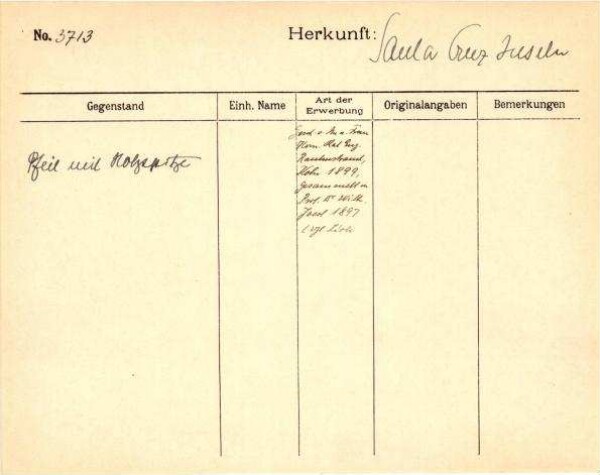 No. 3713
Herkunft: Santa Cruz Inseln
Gegenstand
Einh. Name
Art der
Erwerbung
Originalangaben
Bemerkungen
Pfeil mit Holzspitze
Gesch. v. H. u. Frau
Kom. Rat Eug.
Rautenstrauch,
Köln 1899,
gesammelt v.
Prof. Dr Wilh.
Joest 1897